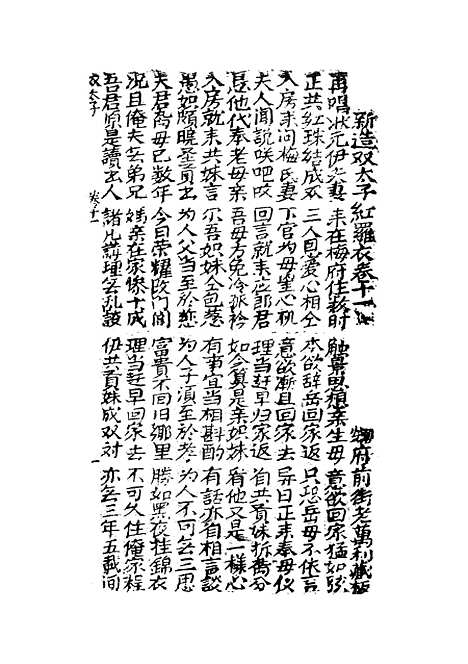 新造双太子紅羅衣卷十一 府前街老萬利藏板
再唱状元伊夫妻 来在梅府住数时 触景思想亲生母 意欲回家猶如
正共紅珠結成双 三人恩愛心相仝 本欲辞岳回家返 只恐岳母不依言
入房来问梅氏妻 下官为母里心机 意欲漸且回家去 异日正来奉母仪
夫人闻說咲吧吱 回言就来应郎君 理当赶早归家返 自共贤妹拆离分
他代奉老母亲 吾母方免冷孤衿 如今算是亲姐妹 看他又是一様心
入房就来共妹言 尔吾如妹仝包 有事宜当相斟酌 有話亦自相言談
愚如頗晓圣贤 为人父当至於慈 为人子須至於孝 为人不可无三思
夫君离母已数年 今日荣耀改门闾 富貴不回旧鄉里 勝如黑夜挂錦衣
况且俺夫无弟兄 媽亲在家像十成 理当赶早回家去 不可久住俺家程
吾君原是讀人 諸凡講理无乱談 伊共賢妹成双对 亦无三年五载间
双太子 卷十一 一